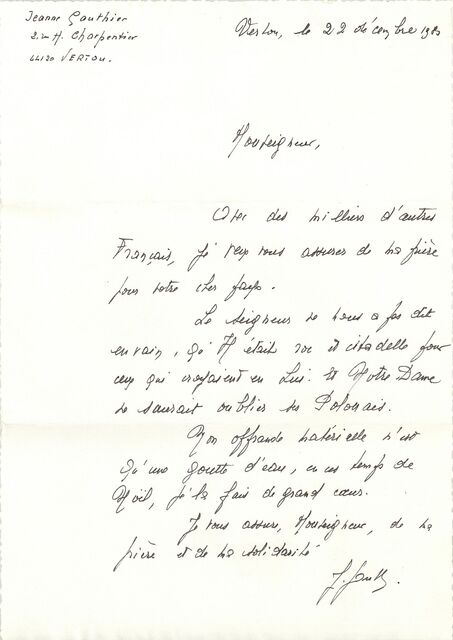 Jeanne Gauthier
2, rue H. Charpentier
44120 VERTOU.
Vertou, le 22 décembre 198
Monseigneur,
Avec des milliers d'autres
Français, je veux vous assurer de ma prière
pour votre cher pays.
Le Seigneur ne nous a pas dit
en vain, qu'Il était roc et citadelle pour
ceux qui croyaient en Lui. Et Notre Dame
ne saurait oublier les Polonais.
Mon offrande matérielle n'est
qu'une goutte d'eau, en ces temps de
Noël, je la fais de grand cœur.
Je vous assure, Monseigneur, de ma
prière et de ma solidarité